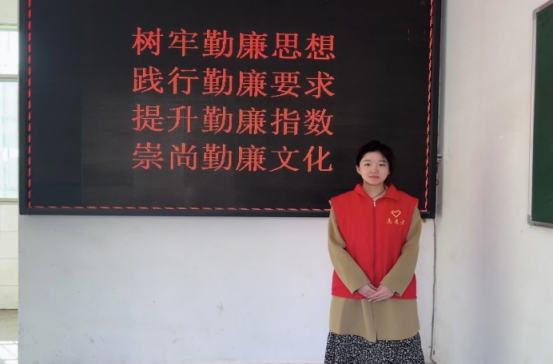 树牢勤廉思想
践行勤廉要求
提升勤廉指数
崇尚勤廉文化